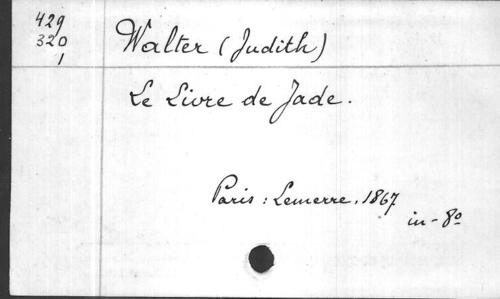 429
320
1
Walter (Judith)
Le Livre de Jade.
Paris : Lemerre, 1867
in-8º